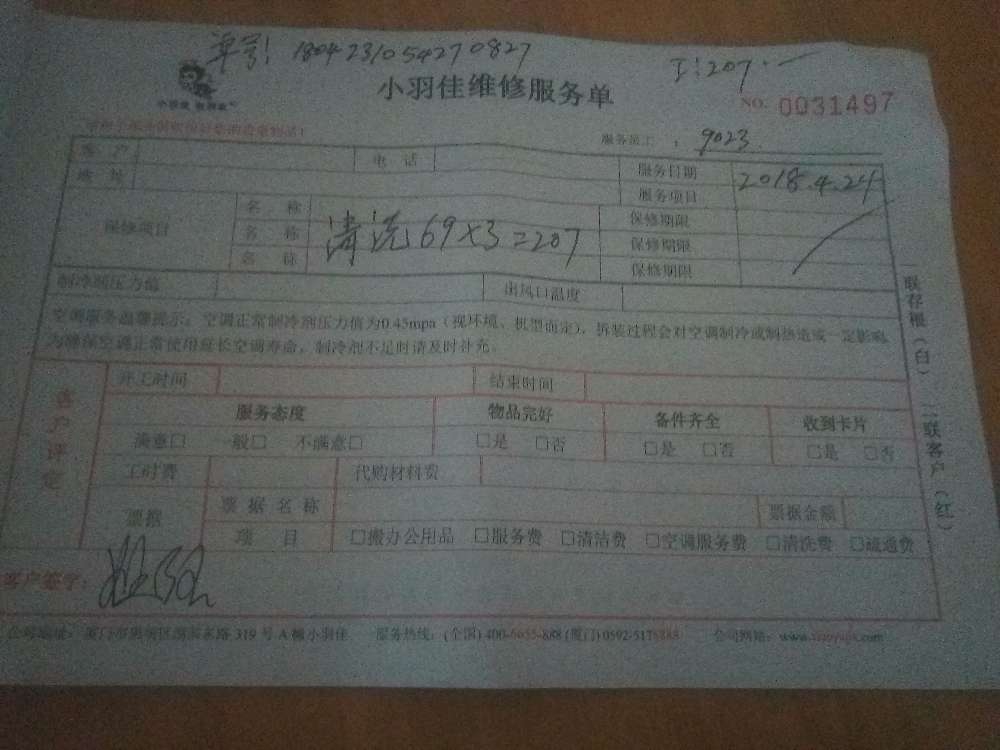 单号: 1804231054270827
工:207.一
小羽佳维修服务单
NO. 0031497
服务员工: 9023
客户 电话 服务日期 2018.4.24
地址 服务项目
保修项目 名称 保修期限
名称 清洗69×3=207 保修期限
名称 保修期限
制冷剂压力值 出风口温度
空调服务温馨提示:空调正常制冷剂压力值为0.45mpa(视环境、机型而定),拆装过程会对空调制冷或制热造成一定影响
为确保空调正常使用延长空调寿命,制冷剂不足时请及时补充。
一联存根(白) 二联客户(红)
客户评定
开工时间 结束时间
服务态度 物品完好 备件齐全 收到卡片
满意□ 一般□ 不满意□ □是 □否 □是 □否 □是 □否
工时费 代购材料费
票据 票据名称 票据金额
项目 □搬办公用品 □服务费 □清洁费 □空调服务费 □清洗费 □疏通费
客户签字:
公司地址: 319号A幢小羽佳 服务热线:(全国)400-6655-888(厦门)0592-5176888 公司网站: